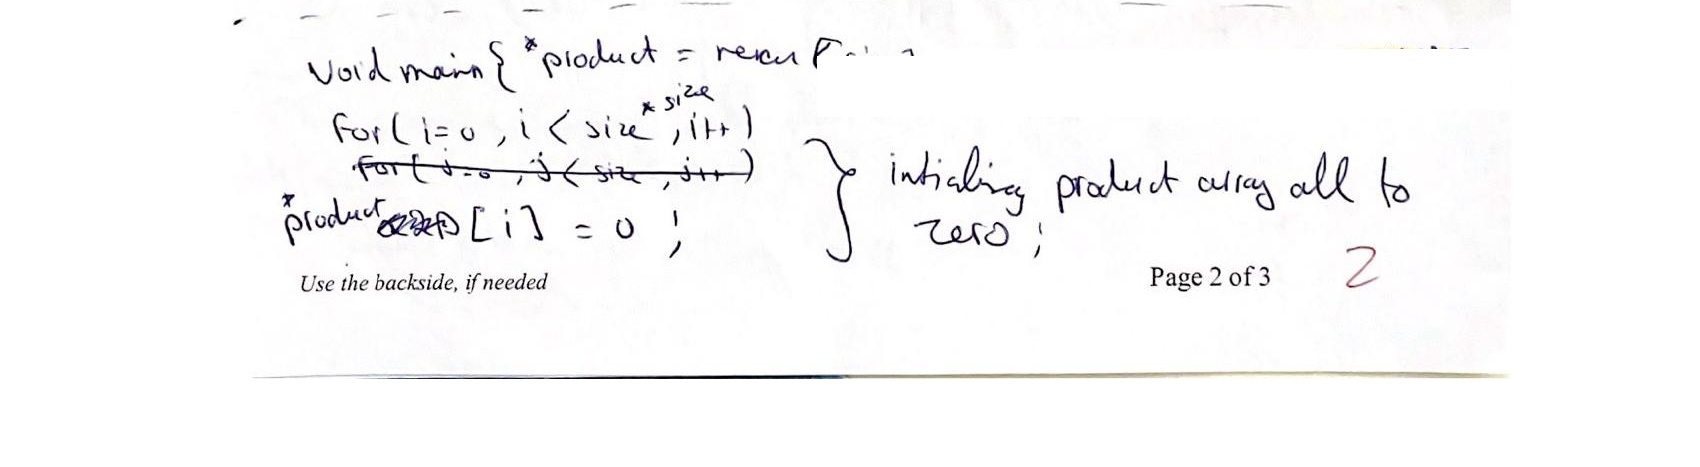 void main { *product =
for ( i=0 , i < size * size , i++ )
for ( j=0 , j < size , j++ )
*product [i] = 0 ;
intializing product array all to
zero ;
Use the backside, if needed
Page 2 of 3
2